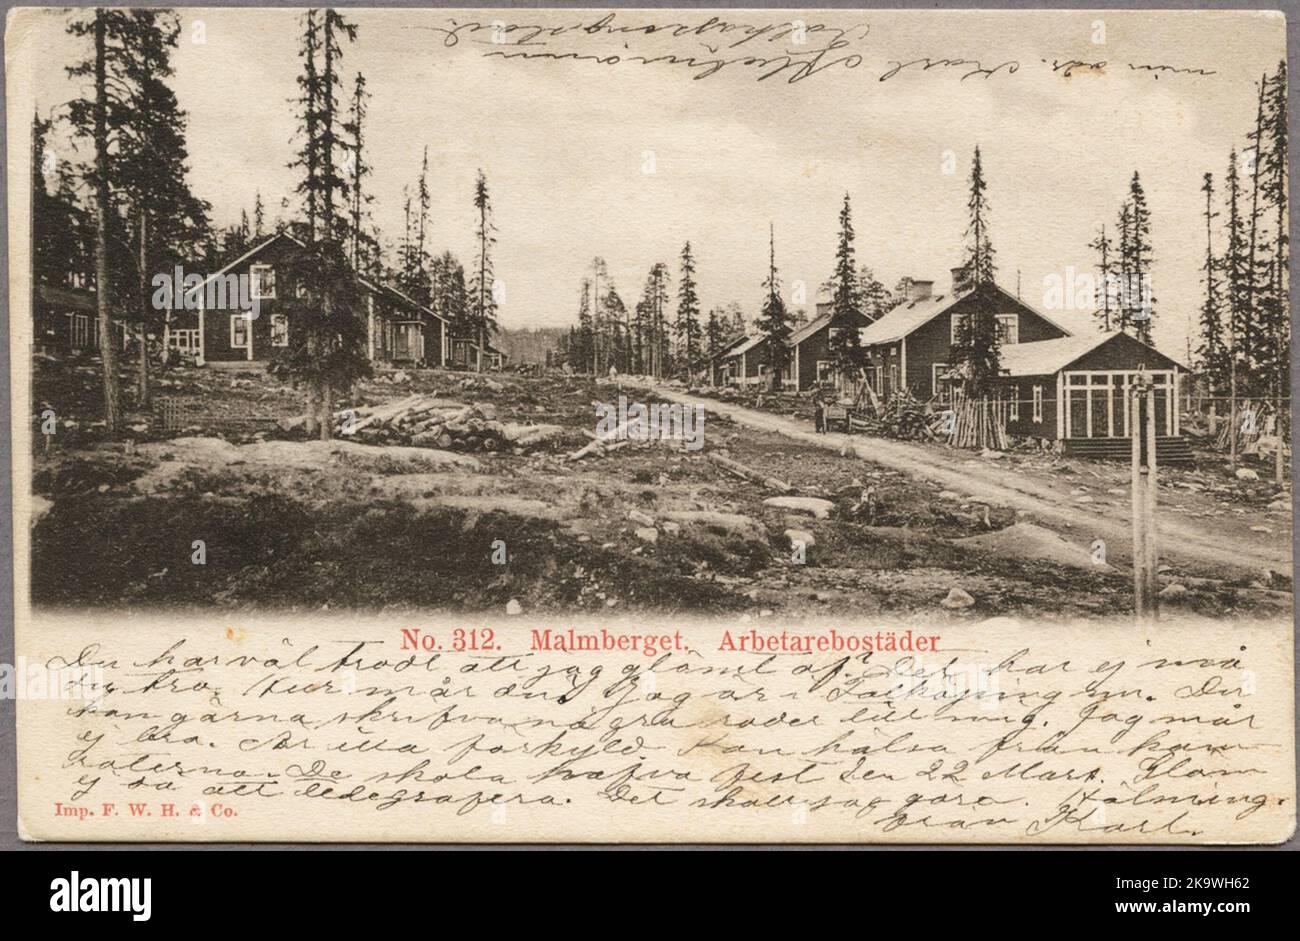 min adr. Karl Holmström
No. 312. Malmberget. Arbetarebostäder
Du har väl trodt att jag glömt af? Det har ej må
du tro. Hur mår du? Jag är i Falköping nu. Du
kan gärna skrifva några rader till mig. Jag mår
ej bra. Är illa förkyld. Kan hälsa från kam
raterna. De skola hafva fest den 22 Mars. Glöm
ej då att telegrafera. Det skall jag göra. Hälsning.
Imp. F. W. H. & Co.
från Karl.
alamy
Image ID: 2K9WH62
www.alamy.com